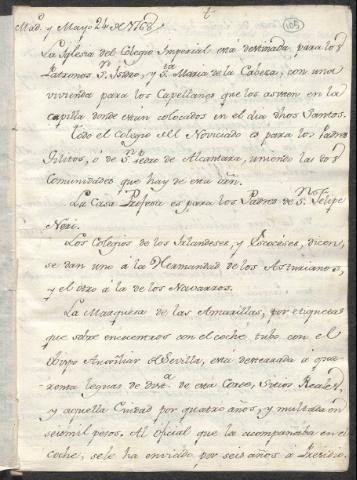 Mad. y Mayo 24 de 1768
105
La Yglesia del Colegio Imperial está destinada para los
Patronos Sn. Isidro, y Sta. Maria de la Cabeza, con una
vivienda para los Capellanes que los asisten en la
capilla donde están colocados en el dia dhos Santos.
Todo el Colegio del Noviciado es para los Padres
Gilitos, ó de Sn. Pedro de Alcantara, uniendo las dos
Comunidades que hay de esta
La Casa Profesa es para los Padres de Sn. Felipe
Neri.
Los Colegios de los Irlandeses, y Escoceses, dicen,
se dan uno á la Hermandad de los Asturianos,
y el otro á la de los Navarros.
La Marquesa de las Amarillas, por etiquetas
que sobre encuentros con el coche tubo con el
Obispo Auxiliar de Sevilla, está desterrada á qua-
renta leguas de dist.a de esta Corte, Sitios Reales,
y aquella Ciudad por quatro años, y multada en
seis mil pesos. Al oficial que la acompañaba en el
coche, se le ha enviado por seis años á Presidio.